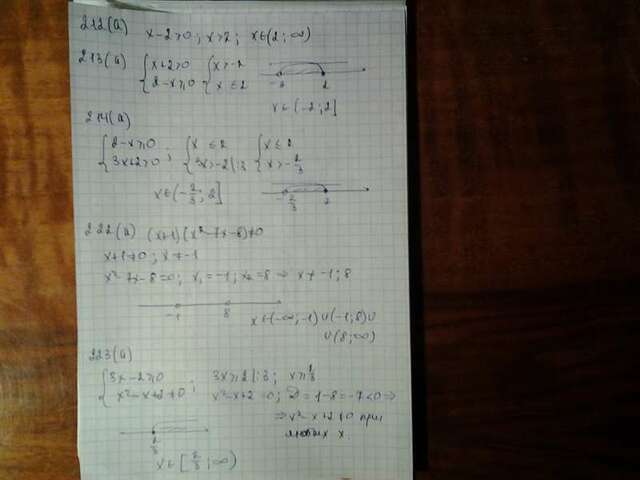 212(а) x-2>0; x>2; x∈(2; ∞)
213(а) { x+2>0 { x>-2
{ 2-x≥0 { x ≤ 2
-2 2
x∈(-2; 2]
214(а)
{ 2-x≥0 ; { x ≤ 2 { x ≤ 2
{ 3x+2>0 { 3x>-2 |:3 { x>-2/3
x∈(-2/3; 2]
-2/3 2
222(а) (x+1)(x²-7x-8)≠0
x+1≠0; x≠-1
x²-7x-8=0; x₁=-1; x₂=8 ⇒ x ≠ -1; 8
-1 8
x∈(-∞;-1)∪(-1;8)∪
∪(8;∞)
223(а)
{ 3x-2≥0 ; 3x≥2 |:3; x≥2/3
{ x²-x+2≠0 x²-x+2=0; D=1-8=-7<0 ⇒
⇒ x²-x+2≠0 при
любых x.
2/3
x∈[2/3; ∞)